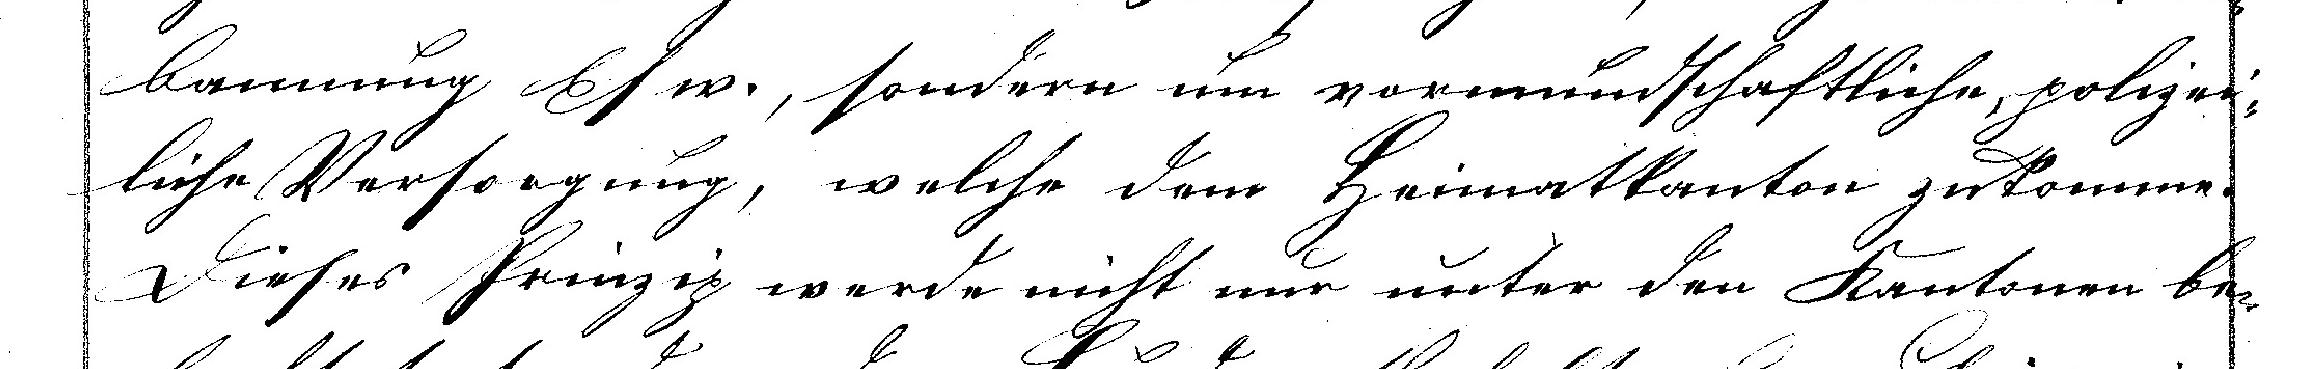 bannung etc., sondern um vormundschaftliche, polizei-
liche Versorgung, welche dem Heimatkanton zukomme.
Dieses Prinzip werde nicht nur unter den Kantonen be-